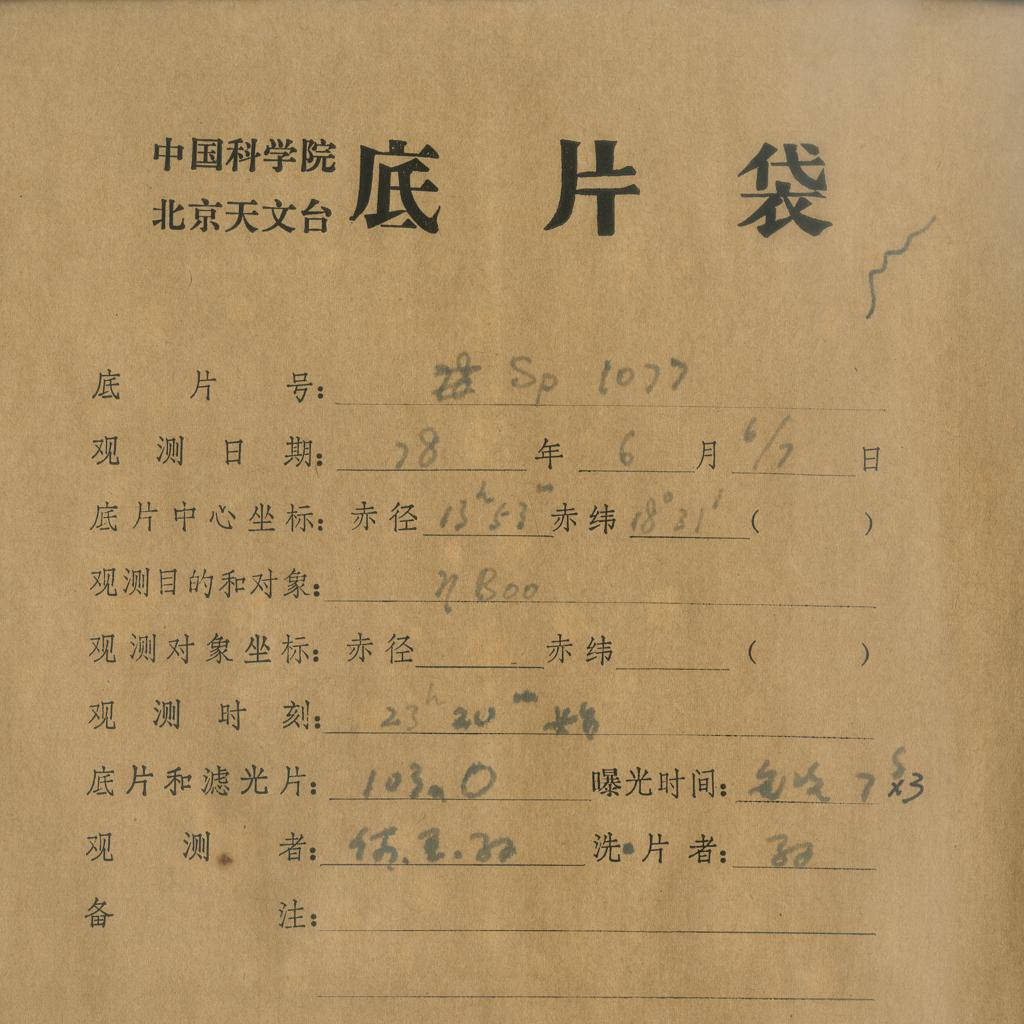 中国科学院
北京天文台 底片袋
底片号: Sp 1077
观测日期: 78 年 6 月 6/7 日
底片中心坐标: 赤径 13h 53m 赤纬 18° 31' ( )
观测目的和对象: η Boo
观测对象坐标: 赤径 赤纬 ( )
观测时刻: 23h 20m
底片和滤光片: 103aO 曝光时间: 7s x3
观测者: 洗片者: 孙
备注: